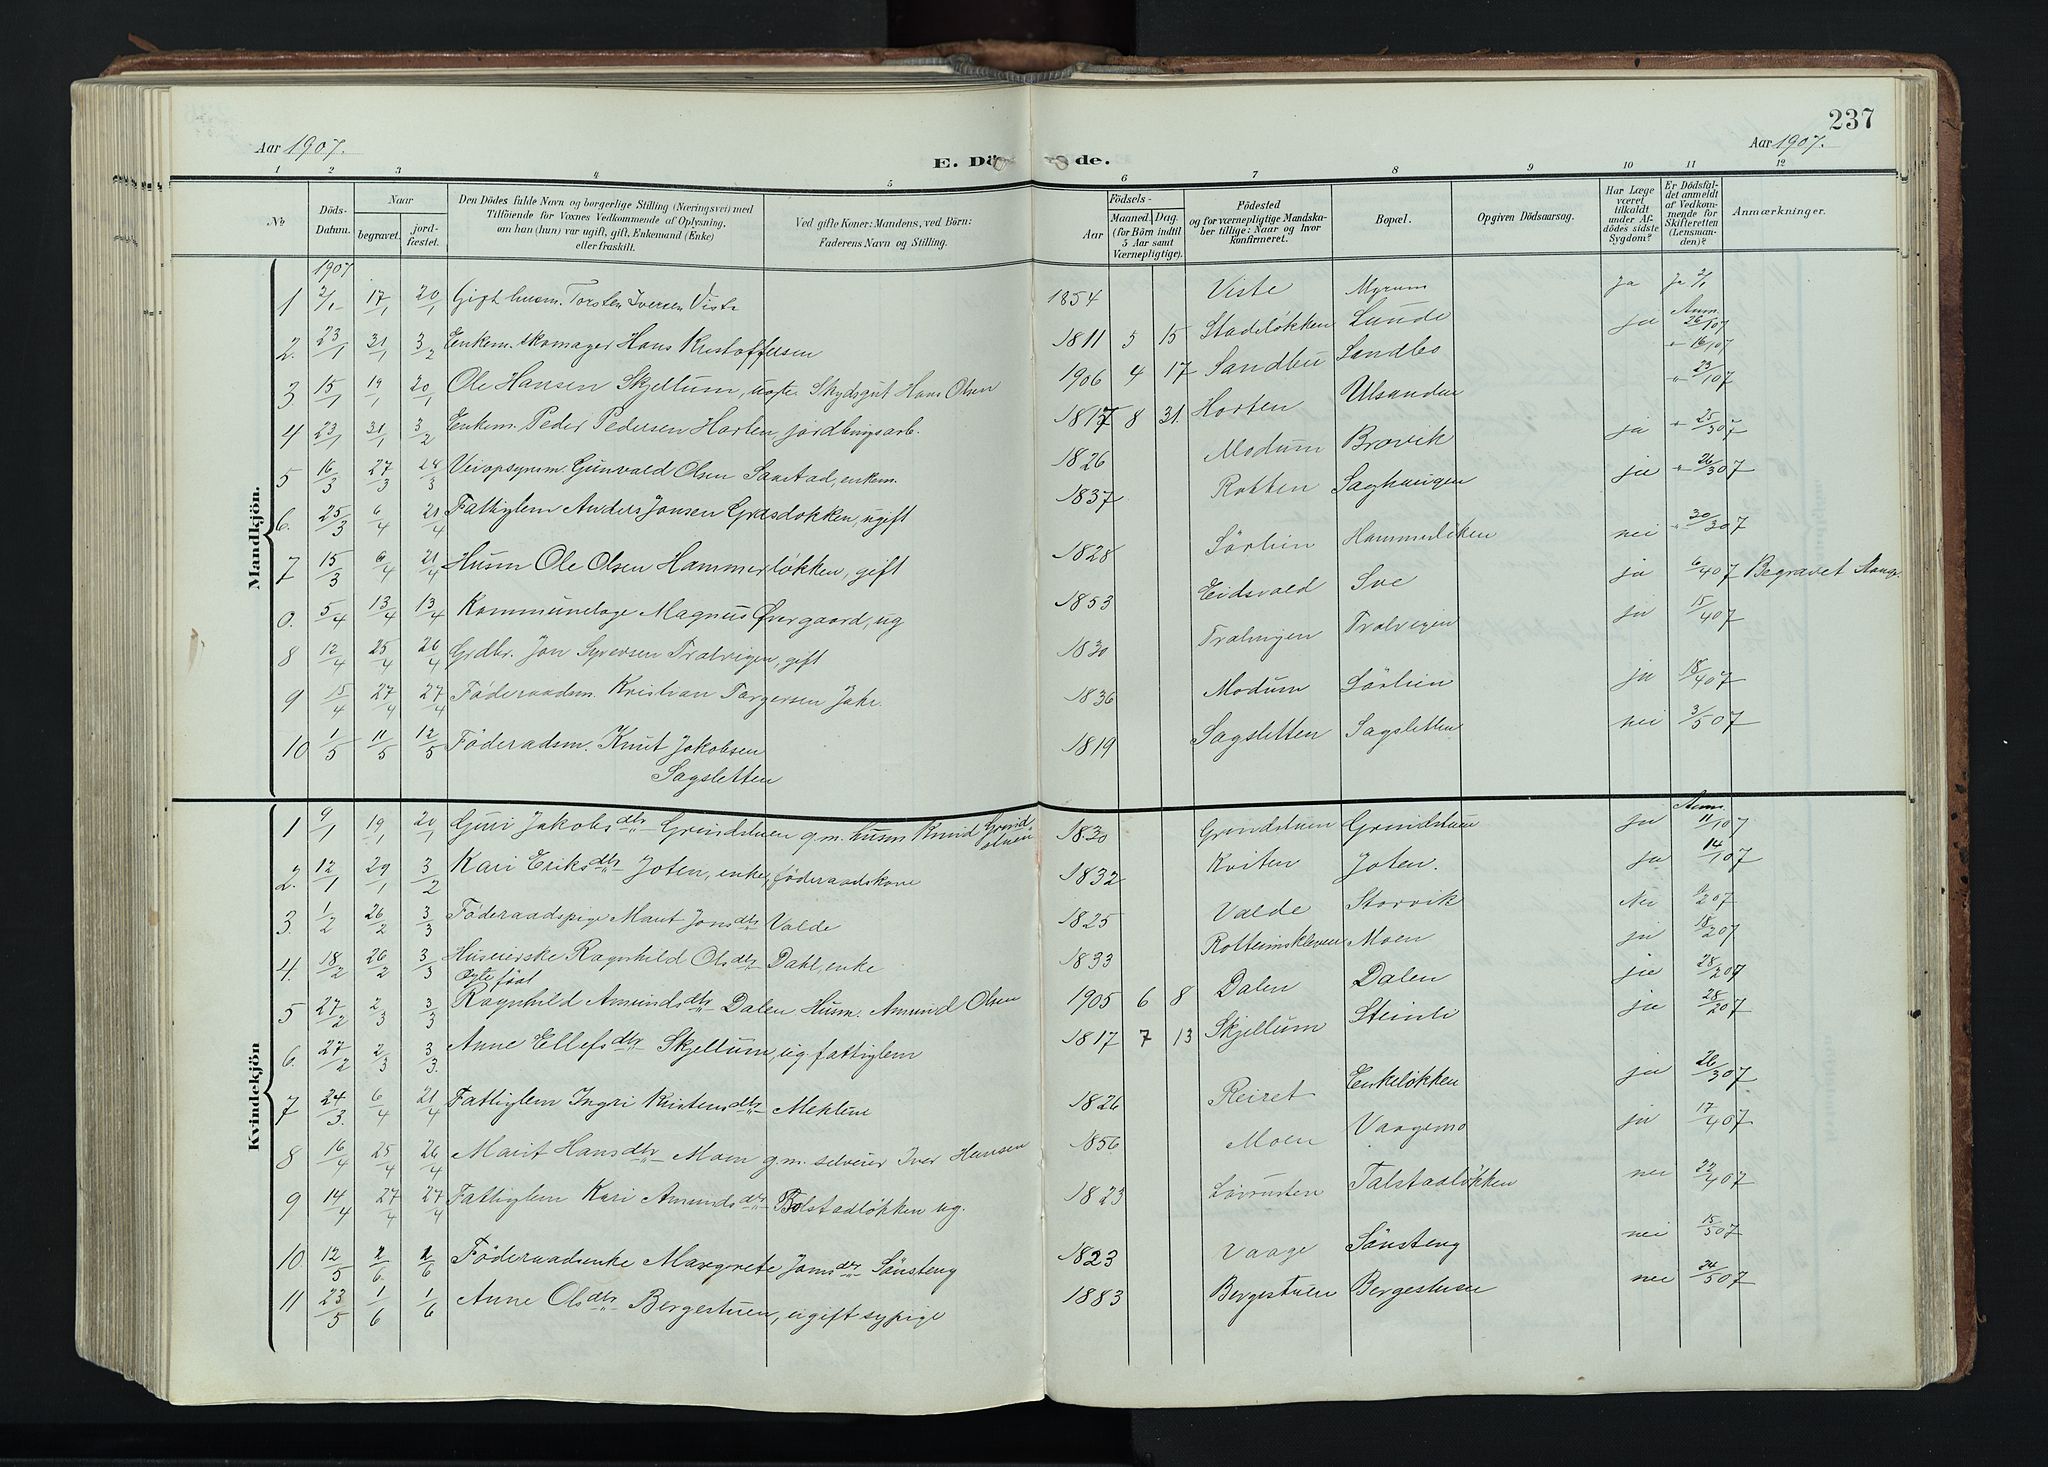 237
Aar 1907.
E. Dö de.
Aar 1907.
1 2 3 4 5 6 7 8 9 10 11 12
№
Döds-Datum.
Naar
begravet.
jord-fæstet.
Den Dödes fulde Navn og borgerlige Stilling (Næringsvei) med
Tilföiende for Voxnes Vedkommende af Oplysning,
om han (hun) var ugift, gift, Enkemand (Enke)
eller fraskilt.
Ved gifte Koner: Mandens, ved Börn:
Faderens Navn og Stilling.
Födsels-
Aar
Maaned. Dag.
(for Börn indtil
5 Aar samt
Værnepligtige).
Födested
og for værnepligtige Mandska-
ber tillige: Naar og hvor
konfirmeret.
Bopæl.
Opgiven Dödsaarsag.
Har Læge
været
tilkaldt
under Af-
dödes sidste
Sygdom?
Er Dödsfal-
det anmeldt
af Vedkom-
mende for
Skifteretten
(Lensman-
den)?
Anmærkninger.
Mandkjön.
1907
1 2/1 17/1 20/1 Gift husm. Torsten Iversen Viste 1854 Viste Myrum ja ja 2/1
2. 23/1 31/1 3/2 Enkem. skomager Hans Kristoffersen 1811 5 15 Stadeløkken Lunde ja Anm. 26/1 07
3 15/1 19/1 20/1 Ole Hansen Skjellum, uægte Skydsgut Hans Olsen 1906 4 17 Sandbu Sandbo " 16/1 07
4 23/1 31/1 3/2 Enkem. Peder Pedersen Harten jordbrugsarb. 1817 8 31. Horten Ulsanden " 23/1 07
5 16/3 27/3 28/3 Veiopsynsm. Gunvald Olsen Saastad, enkem. 1826 Modum Bravik ja " 25/3 07
6. 25/3 6/4 21/4 Fattiglem Anders Jonsen Græsdokken, ugift 1837 Rotten Saghaugen ja " 26/3 07
7 15/3 6/4 21/4 Husm Ole Olsen Hammerløkken, gift 1828 Sørlien Hammerløken nei " 30/3 07
0. 5/4 13/4 13/4 Kommunelæge Magnus Øvergaard, ug 1853 Eidsvold Sve ja 6/4 07 Begravet Stange
8 12/4 25/4 26/4 Grdbr. Jon Syversen Tralvigen, gift 1830 Tralvigen Tralvigen ja 15/4 07
9 15/4 27/4 27/4 Føderaadsm. Kristian Torgersen 1836 Modum Sørlien ja 18/4 07
10 1/5 11/5 12/5 Føderadsm. Knut Jakobsen 1819 Sagsletten Sagsletten nei 3/5 07
Sagsletten
Kvindekjön
1 9/1 19/1 20/1 Guri Jakobsdtr Grindstuen g.m. husm Knud Grindstuen 1830 Grindstuen Grindstuen ja Anm. 11/1 07
2. 12/1 29/1 3/2 Kari Eriksdtr Joten, enke, føderaadskone 1832 Kviten Joten. ja 14/1 07
3. 1/2 26/2 3/3 Føderaadspige Marit Jonsdtr Valde 1825 Valde Storvik Nei 9/2 07
4. 18/2 26/2 3/3 Huseierske Ragnhild Olsdtr Dahl, enke 1833 Rolleimskleven Moen ja 18/2 07
Ægte født
5 27/2 2/3 3/3 Ragnhild Amundsdtr Dalen Husm. Amund Olsen 1905 6 8 Dalen Dalen ja 28/2 07
6. 27/2 2/3 3/3. Anne Ellefsdtr Skjellum, ug. fattiglem 1817 7 13 Skjellum Steinli ja 28/2 07
7 24/3. 6/4 21/4 Fattiglem Ingri Kristensdtr Mehlum 1826 Reiret Enkeløkken ja 26/3 07
8 16/4 25/4 26/4 Marit Hansdtr Moen g.m. selveier Iver Hansen 1856 Moen Vaagemo ja 17/4 07
9 14/4 27/4 27/4 Fattiglem Kari Amundsdtr Bolstadløkken ug. 1823 Lövrusten Talstadløkken nei 22/4 07
10. 12/5 2/6. 2/6 Føderaadsenke Margrete Jonsdtr Sønsteng 1823 Vaage Sønsteng nei 15/5 07
11 23/5 1/6 1/6 Anne Olsdtr Bergestuen, ugift sypige 1883 Bergestuen Bergestuen nei 24/5 07